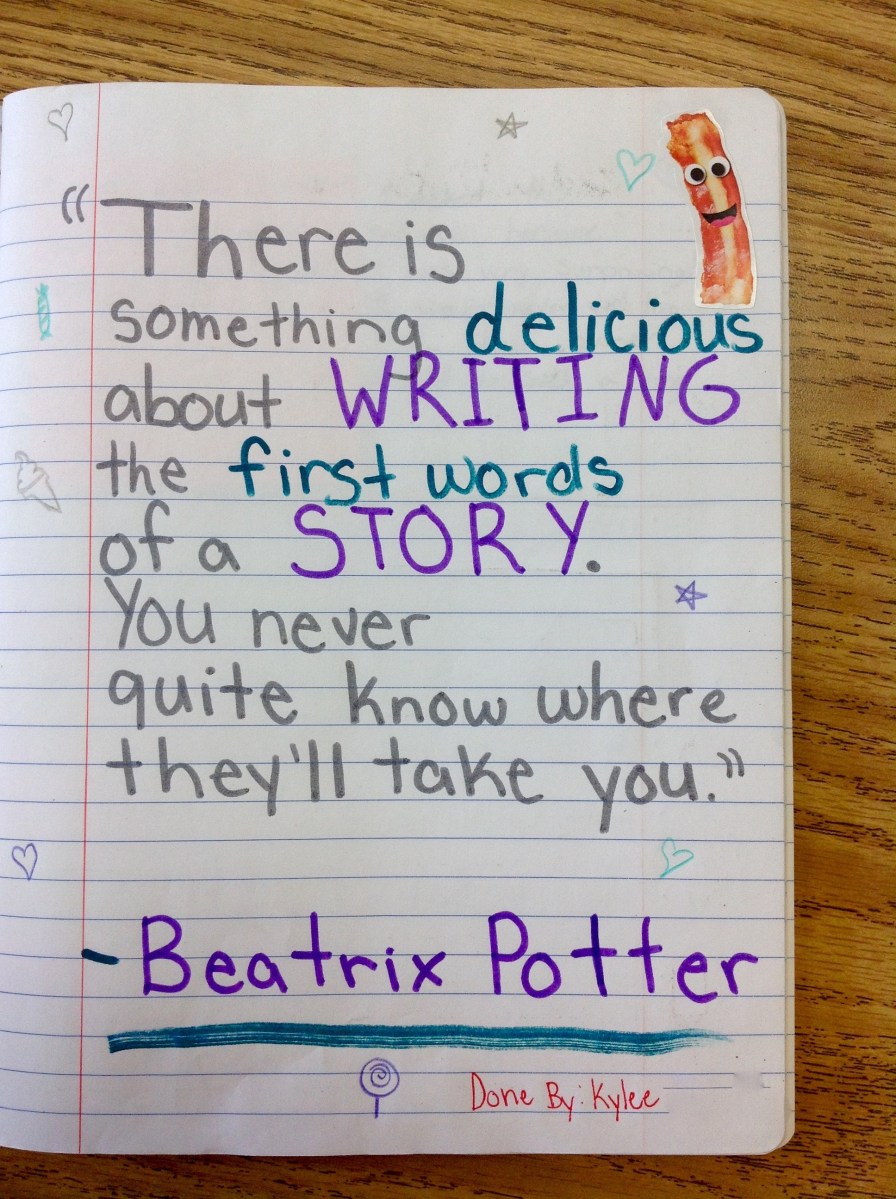 “There is
something delicious
about WRITING
the first words
of a STORY.
You never
quite know where
they'll take you.”
- Beatrix Potter
Done By: Kylee